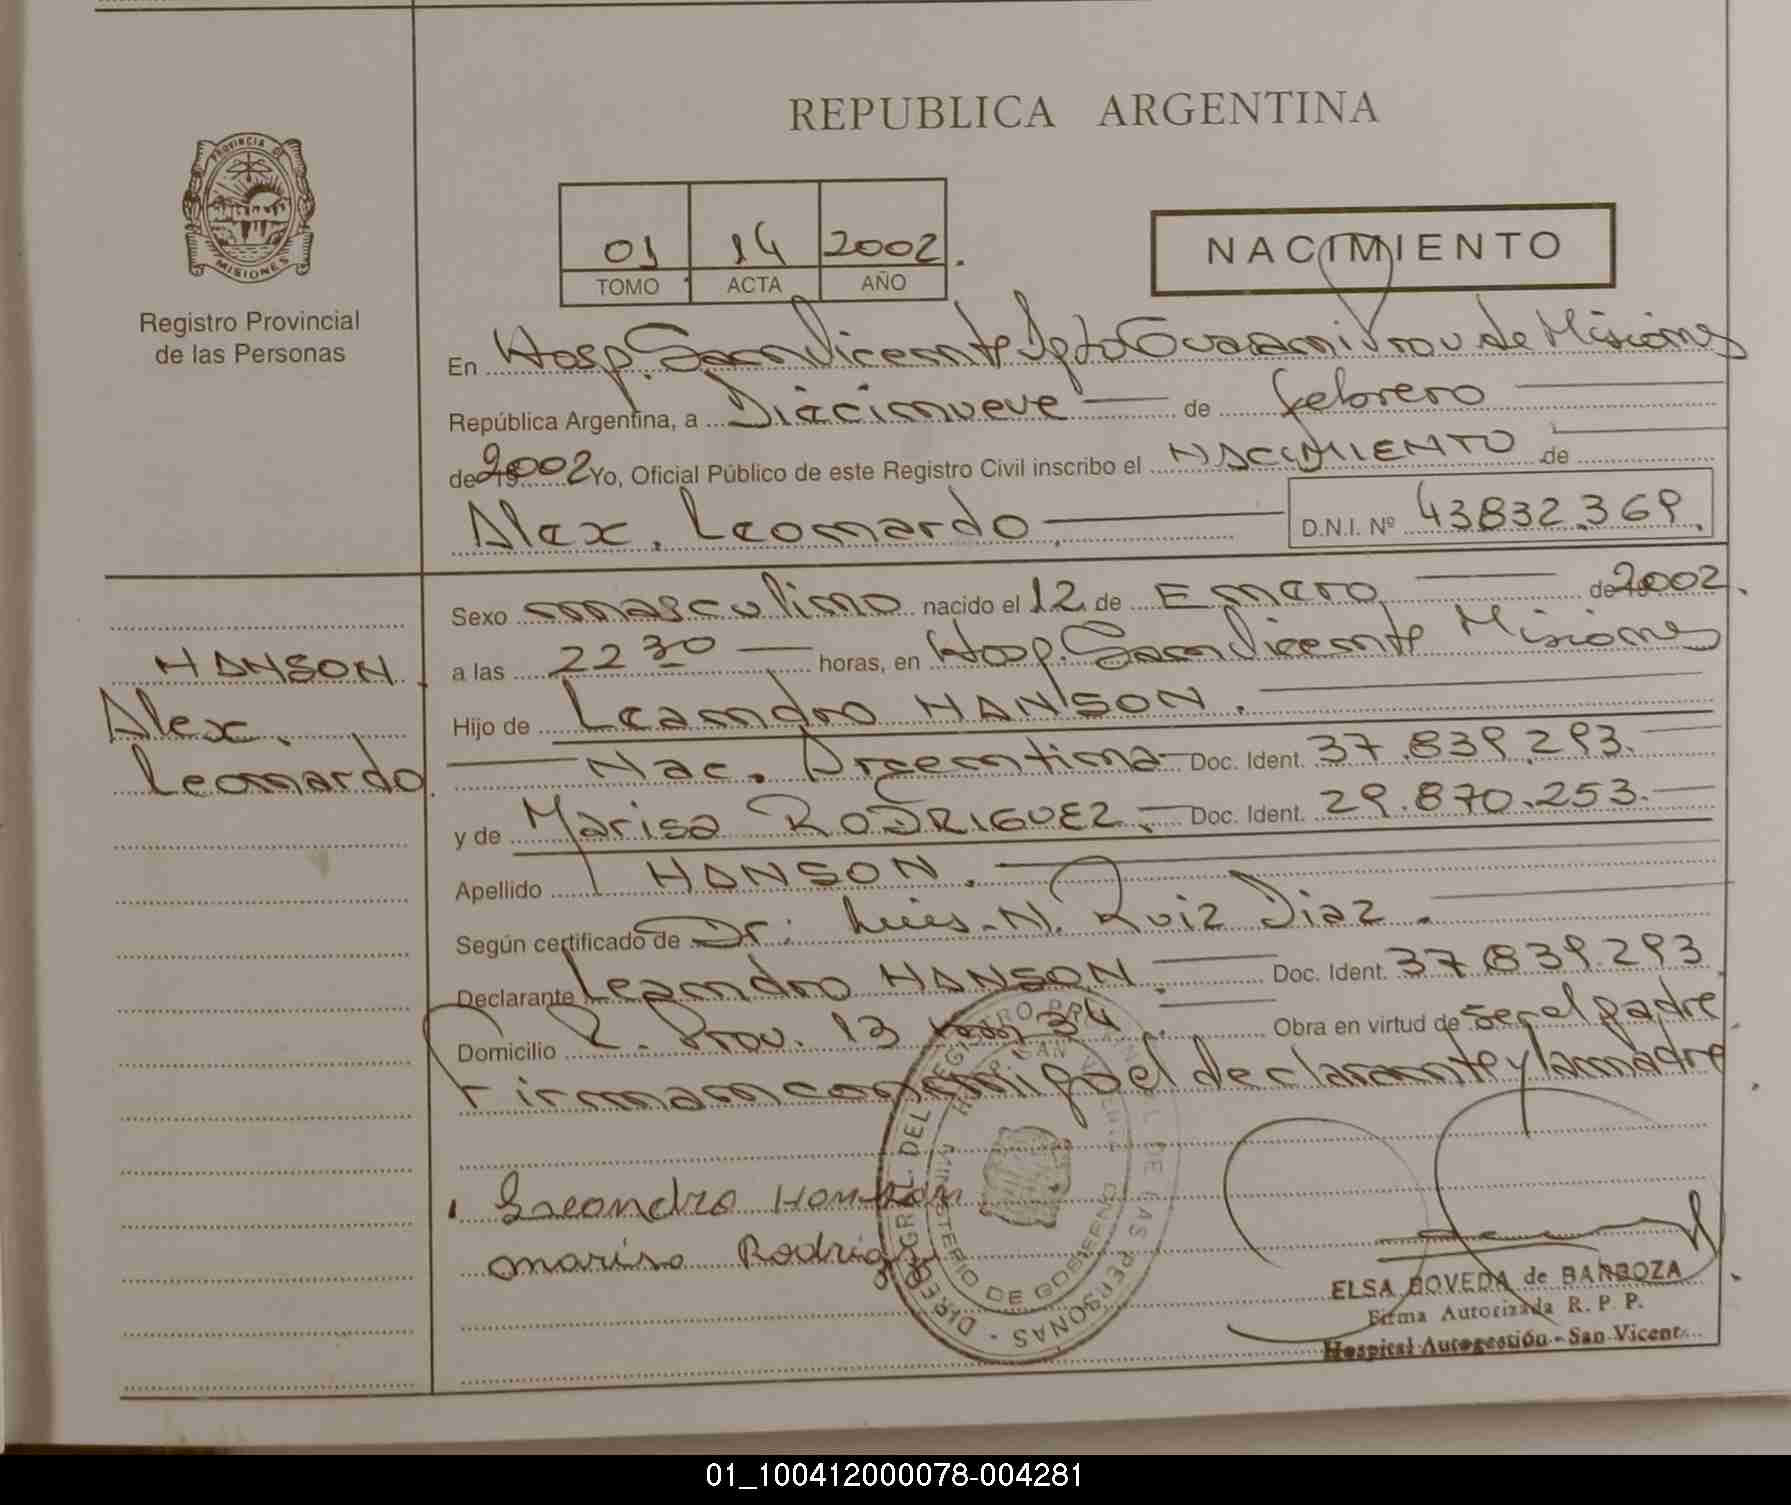 REPUBLICA ARGENTINA
PROVINCIA DE
MISIONES
Registro Provincial
de las Personas
01 14 2002.
TOMO ACTA AÑO
NACIMIENTO
En Hosp. San Vicente Dpto Guarani Prov de Misiones
República Argentina, a Diecinueve de febrero
de 2002 Yo, Oficial Público de este Registro Civil inscribo el NACIMIENTO de
Alex. Leonardo D.N.I. Nº 43832.369.
Sexo masculino nacido el 12 de Enero de 2002.
HANSON
a las 22 30 horas, en Hosp. San Vicente Misiones
Alex.
Hijo de Leandro HANSON.
Leonardo.
Nac. Argentina Doc. Ident. 37.839.293.
y de Marisa RODRIGUEZ. Doc. Ident. 29.870.253.
Apellido HANSON.
Según certificado de Dr. Luis. N. Ruiz Diaz.
Declarante Leandro HANSON. Doc. Ident. 37.839.293
Domicilio R. Prov. 13 34 Obra en virtud de ser el padre
Firman conmigo el declarante y la madre
Leandro
marisa
DIREC. GRAL. DEL REGISTRO PROVINCIAL DE LAS PERSONAS
MINISTERIO DE GOBIERNO
ELSA BOVEDA de BARBOZA
Firma Autorizada R. P. P.
Hospital Autogestión - San Vicent
01_100412000078-004281